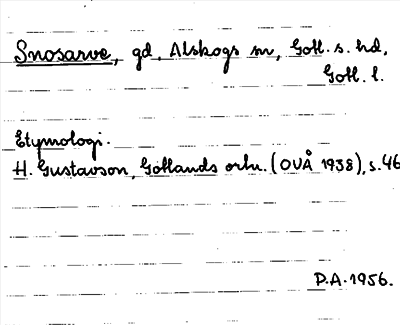 Snosarve, gd, Alskogs sn, Gotl. s. hd,
Gotl. l.
Etymologi.
H. Gustavson, Gotlands ortn. (OVÅ 1938), s. 46
P.A. 1956.